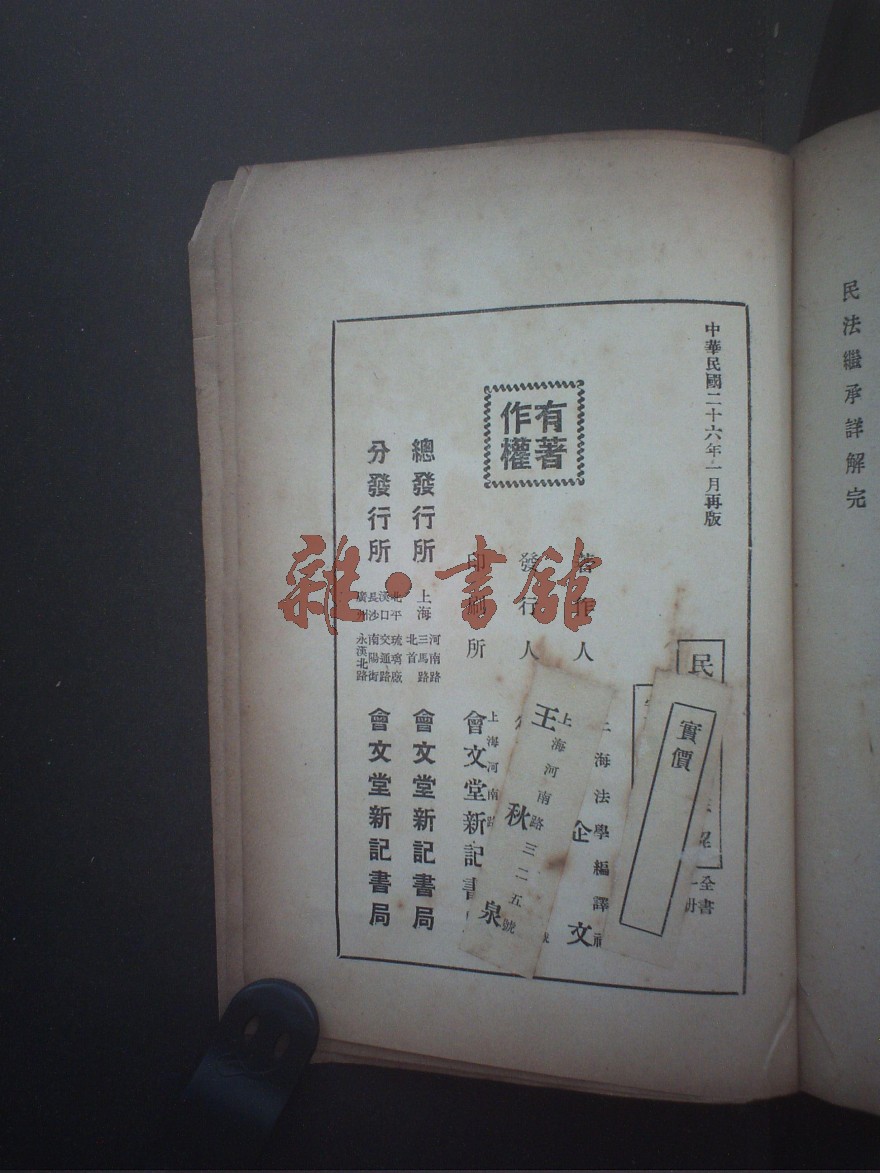 民法繼承詳解完
中華民國二十六年一月再版
民
全書
實價
有著作權
著作人
上海法學編譯社
企文
發行人
上海河南路三二五號
王秋泉
印刷所
上海河南路
會文堂新記書
總發行所
上海
河南路
三馬路
北首
會文堂新記書局
分發行所
北平
琉璃廠
漢口
交通路
長沙
南陽街
廣州
永漢北路
會文堂新記書局
雜·書館